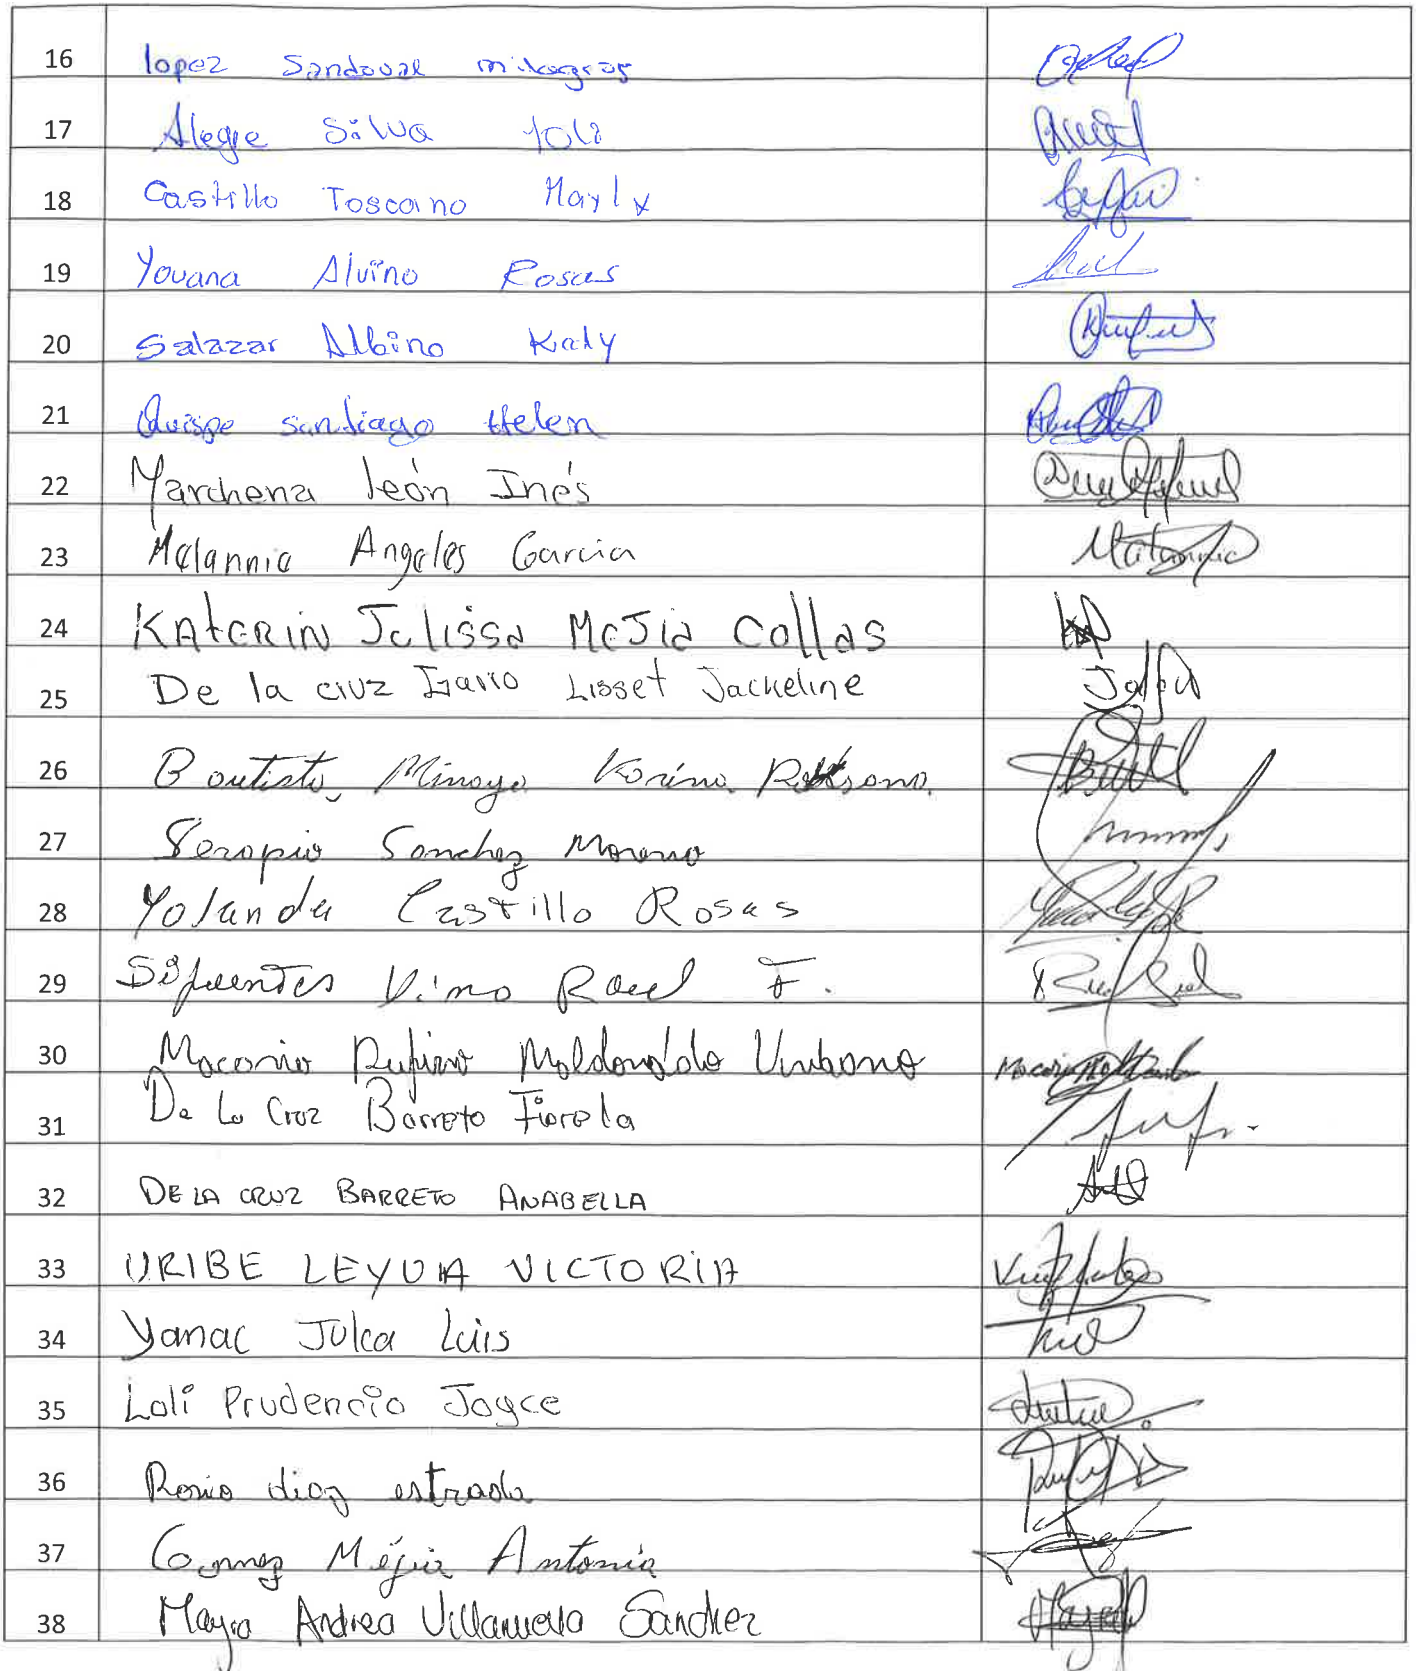 16 lopez Sandoval milagros
17 Alegre Silva Yoli
18 Castillo Toscano Mayly
19 Youana Alvino Rosas
20 Salazar Albino Katy
21 Quispe santiago Helen
22 Marchena león Inés
23 Melannie Angeles Garcia
24 KAtERIN Julissa MeJia Collas
25 De la cruz Lisset Jackeline
26 Bautista, Minaya Karina
27 Serapio Sanchez Moreno
28 Yolanda Castillo Rosas
29 Sifuentes Raul F.
30 Macario Rufino Maldonaldo Urbano
31 De La Cruz Barreto Fiorela
32 DE LA CRUZ BARRETO ANABELLA
33 URIBE LEYUA VICTORIA
34 Yanac Julca Luis
35 Loli Prudencio Joyce
36 Rosio diaz estrada
37 Gomez Mejia Antonia
38 Mayra Andrea Villanueva Sanchez